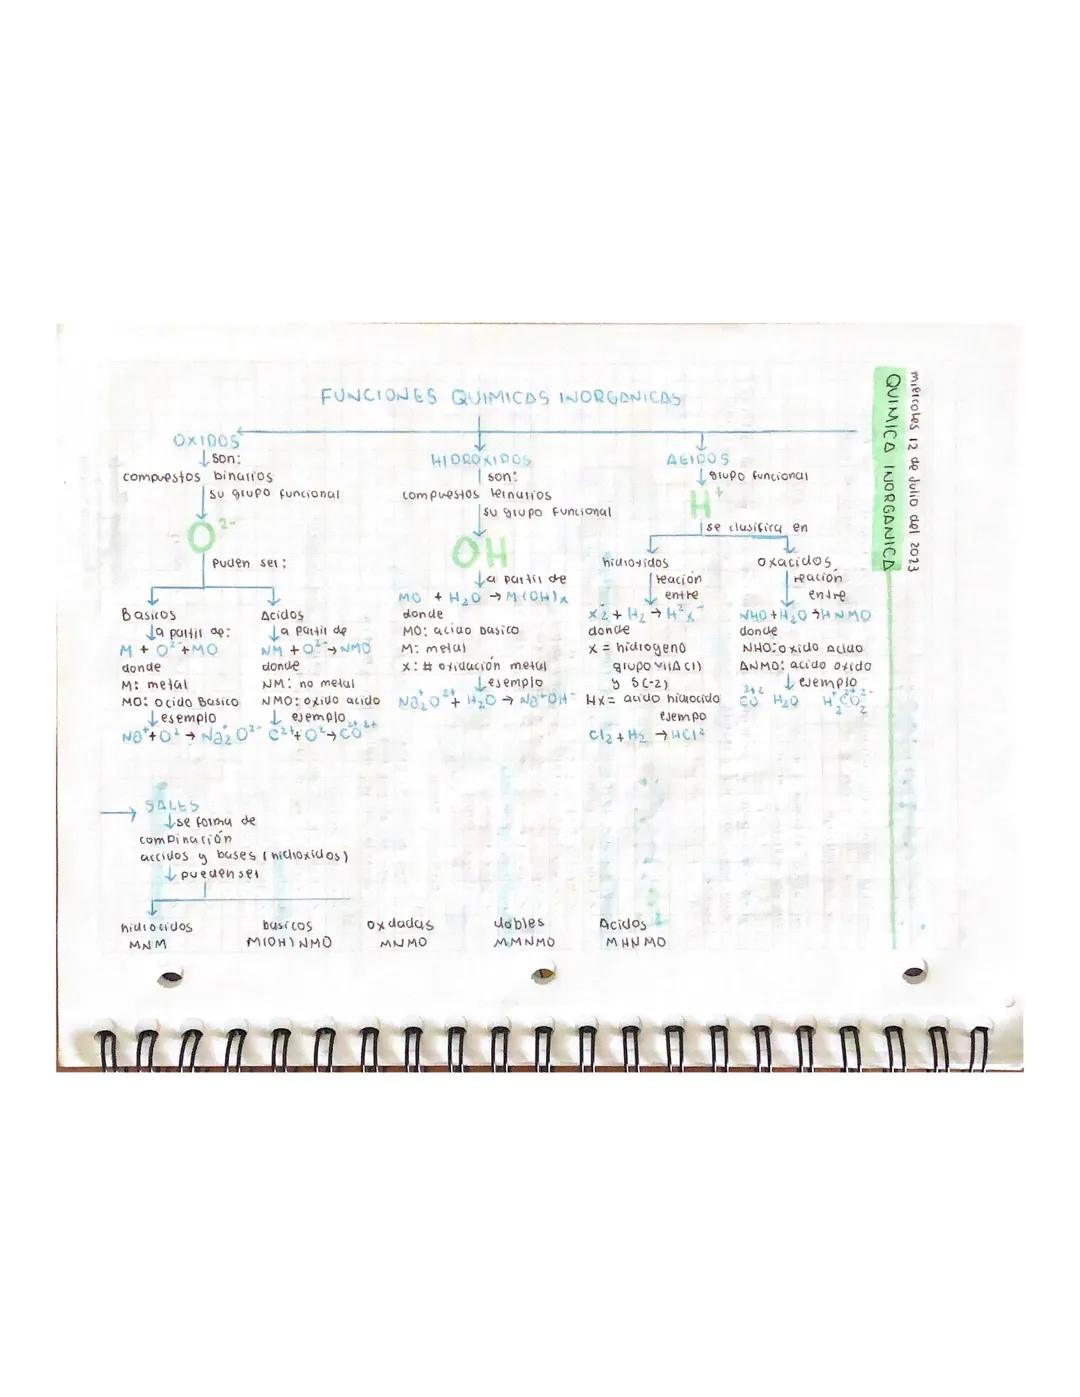 miercoles 12 de Julio del 2023
QUIMICA INORGANICA
FUNCIONES QUIMICAS INORGANICAS
OXIDOS
son:
compuestos binarios
su grupo funcional
O²⁻
puden ser:
Basicos
a partir de:
M + O²⁻ + MO
donde
M: metal
MO: ocido Basico
esemplo
Na⁺ + O² → Na₂⁺O²⁻
Acidos
a partir de
NM + O²⁻ → NMO
donde
NM: no metal
NMO: oxido acido
esemplo
C²⁺ + O² → CO
HIDROXIDOS
son:
compuestos ternarios
su grupo funcional
OH
a partir de
MO + H₂O → M(OH)x
donde
MO: acido basico
M: metal
x: # oxidación metal
esemplo
Na₂⁺O²⁺ + H₂O → Na⁺OH⁻
ACIDOS
grupo funcional
H⁺
se clasifica en
reación
entre
donde
X = hidrogeno
grupo VIIA (1)
y S(-2)
HX = acido hidrocido
esempo
Cl₂ + H₂ → HCl²
oxacidos
reación
entre
NHO + H₂O → HNMO
donde
NHO: oxido acido
ANMO: acido oxido
esemplo
H₂O
SALES
se forma de
combinación
accidos y bases (hidroxidos)
pueden ser
hidrocidos
MNM
basicos
M(OH)NMO
oxdadas
MNMO
dobles
MMNMO
Acidos
MHNMO